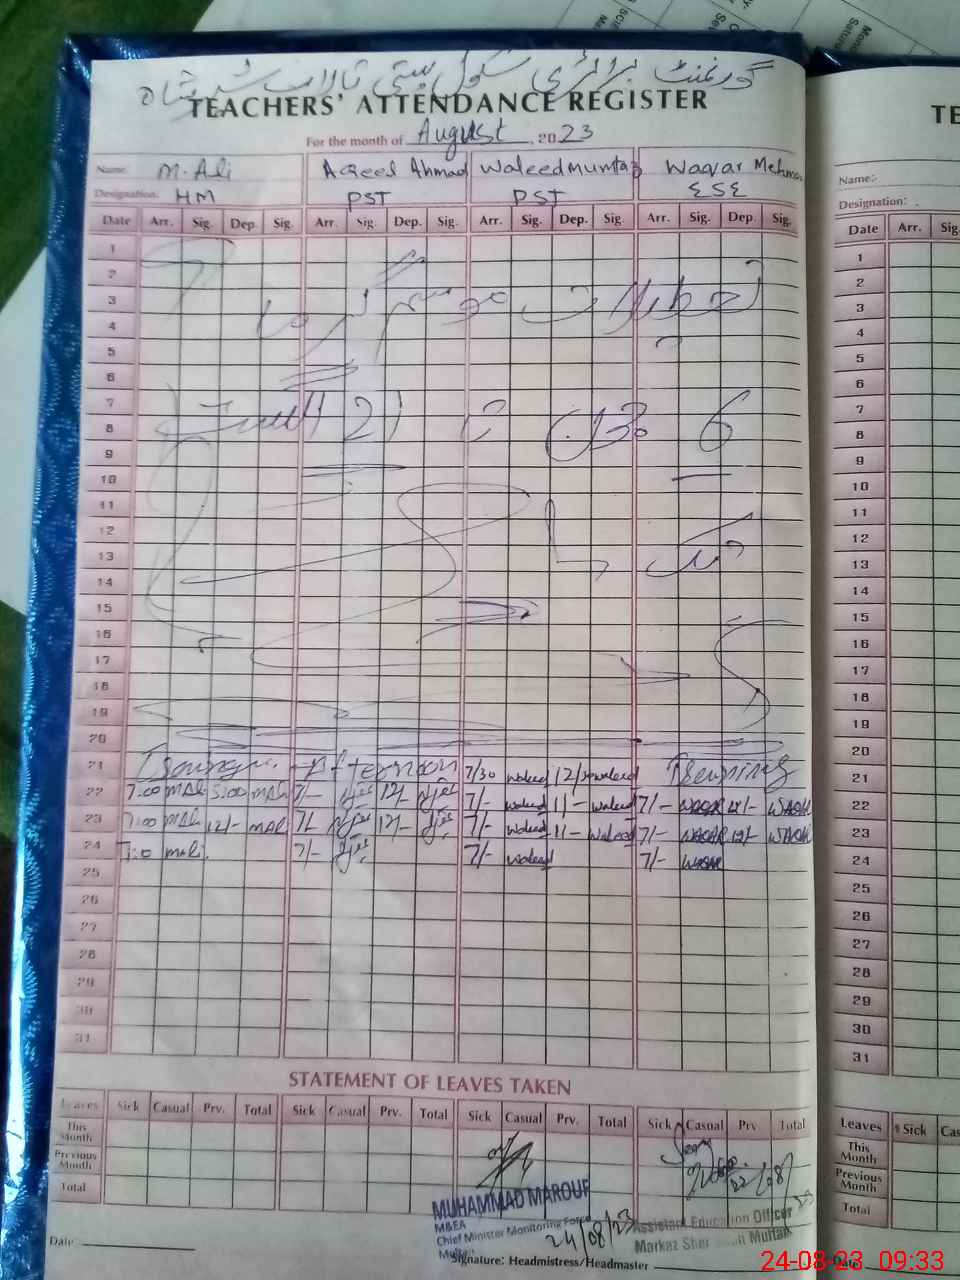 گورنمنٹ پرائمری سکول بستی تالاب شیر شاہ
TEACHERS' ATTENDANCE REGISTER
For the month of August, 2023
Name: M. Ali Aqeel Ahmad Waleed mumtaz Waqar Mehmo
Designation: HM PST PST ESE
Date Arr. Sig. Dep. Sig. Arr. Sig. Dep. Sig. Arr. Sig. Dep. Sig. Arr. Sig. Dep. Sig.
1
2
3 تعطیلات موسم گرما
4
5
6
7
8 6 جون 21 اگست
9
10
11
12
13 تک
14
15
16
17
18
19
20
21 Afternoon 7/30 waleed 12/30 waleed
22 7:00 MAli 5:00 MAli 7/- 12/- 7/- waleed 11/- waleed 7/- WAQAR 12/- WAQAR
23 7:00 MAli 12/- MAli 7/- 12/- 7/- waleed 11/- waleed 7/- WAQAR 12/- WAQAR
24 7:0 MAli 7/- 7/- waleed 7/- WAQAR
25
26
27
28
29
30
31
STATEMENT OF LEAVES TAKEN
Leaves Sick Casual Prv. Total Sick Casual Prv. Total Sick Casual Prv. Total Sick Casual Prv Total
This Month
Previous Month
Total
MUHAMMAD MAROUF
M&EA
Chief Minister Monitoring Force
24/08/23
22/08/23
Assistant Education Officer
Markaz Sher Shah Multan
Date:
Signature: Headmistress/Headmaster
TE
Name:-
Designation:
Date Arr. Sig
1
2
3
4
5
6
7
8
9
10
11
12
13
14
15
16
17
18
19
20
21
22
23
24
25
26
27
28
29
30
31
Leaves Sick Cas
This Month
Previous Month
Total
Date
24-08-23 09:33